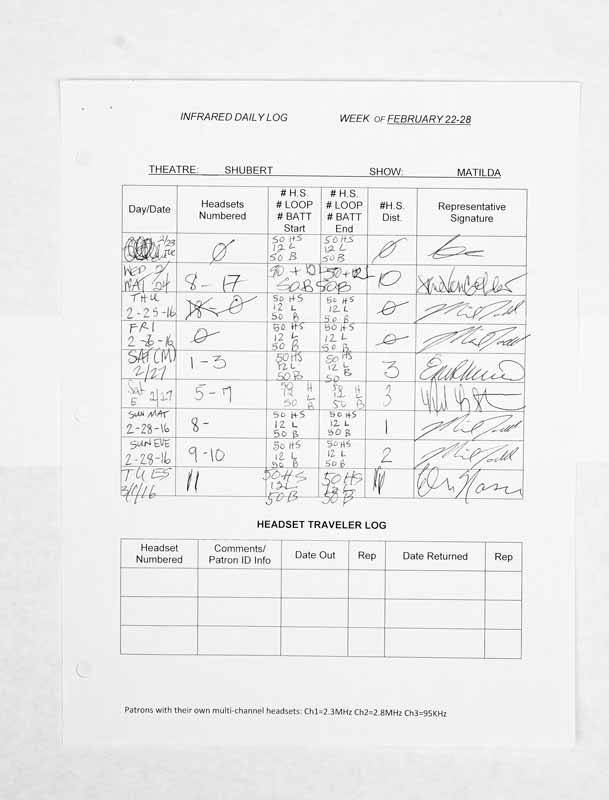 INFRARED DAILY LOG WEEK OF FEBRUARY 22-28
THEATRE: SHUBERT SHOW: MATILDA
Day/Date Headsets Numbered # H.S. # LOOP # BATT Start # H.S. # LOOP # BATT End #H.S. Dist. Representative Signature
2/23 Tue Ø 50 HS 12 L 50 B 50 HS 12 L 50 B Ø
WED 2/ MAT 24 8-17 50 + 12 L 50B 50 + 12 L 50B 10
THU 2-25-16 Ø 50 HS 12 L 50 B 50 HS 12 L 50 B Ø
FRI 2-26-16 Ø 50 HS 12 L 50 B 50 HS 12 L 50 B Ø
SAT (M) 2/27 1-3 50HS 12L 50B 50 HS 12 L B 50 3
Sat E 2/27 5-7 50 H 12 L 50 B 50 H 12 L 50 B 3
SUN MAT 2-28-16 8- 50 HS 12 L 50 B 50 HS 12 L 50 B 1
SUN EVE 2-28-16 9-10 50 HS 12 L 50 B 50 HS 12 L 50 B 2
TUES 3/1/16 11 50HS 12L 50B 50HS 12L 50B
HEADSET TRAVELER LOG
Headset Numbered Comments/ Patron ID Info Date Out Rep Date Returned Rep
Patrons with their own multi-channel headsets: Ch1=2.3MHz Ch2=2.8MHz Ch3=95KHz